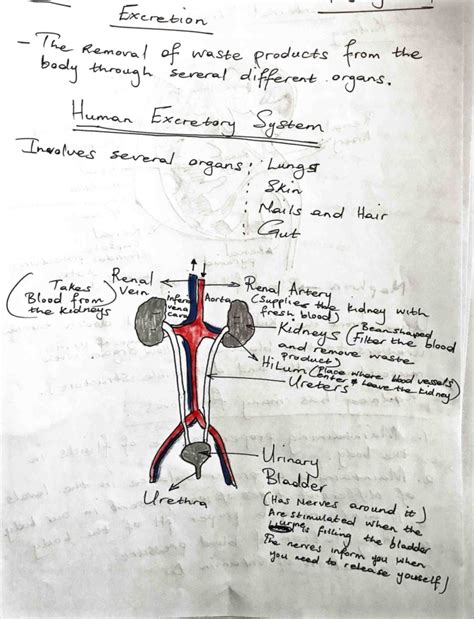 Excretion
- The Removal of waste products from the
body through several different organs.
Human Excretory System
Involves several organs; Lungs
: Skin
: Nails and Hair
: Gut
(Takes
Blood from
the kidneys)
Renal
Vein
inferior
vena
cava
Aorta
Renal Artery
(Supplies the kidney with
fresh blood)
Kidneys (Beanshaped
(Filter the blood
and remove waste
product)
Hilum (Place where blood vessels
enter & leave the kidney)
Ureters
Urinary
Bladder
(Has nerves around it)
Are stimulated when the
urine is filling the bladder
The nerves inform you when
you need to release youself)
Urethra